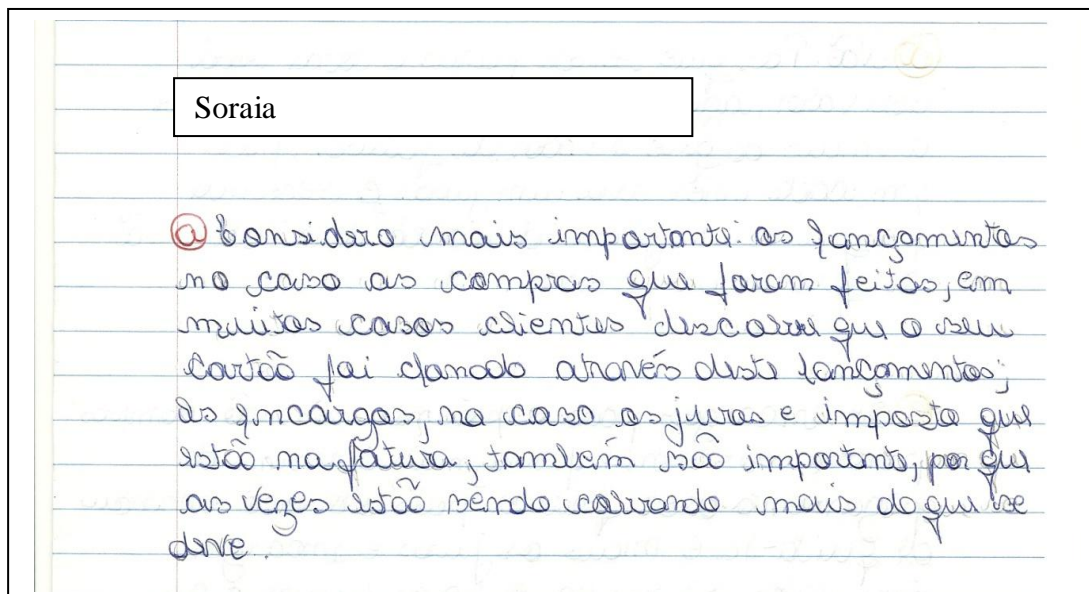 Soraia
a Considero mais importante: os lançamentos
no caso as compras que foram feitas, em
muitos casos clientes descobre que o seu
cartão foi clonado através deste lançamentos;
Os encargos, no caso os juros e imposto que
estão na fatura, também são importante, por que
as vezes estão sendo cobrando mais do que se
deve.